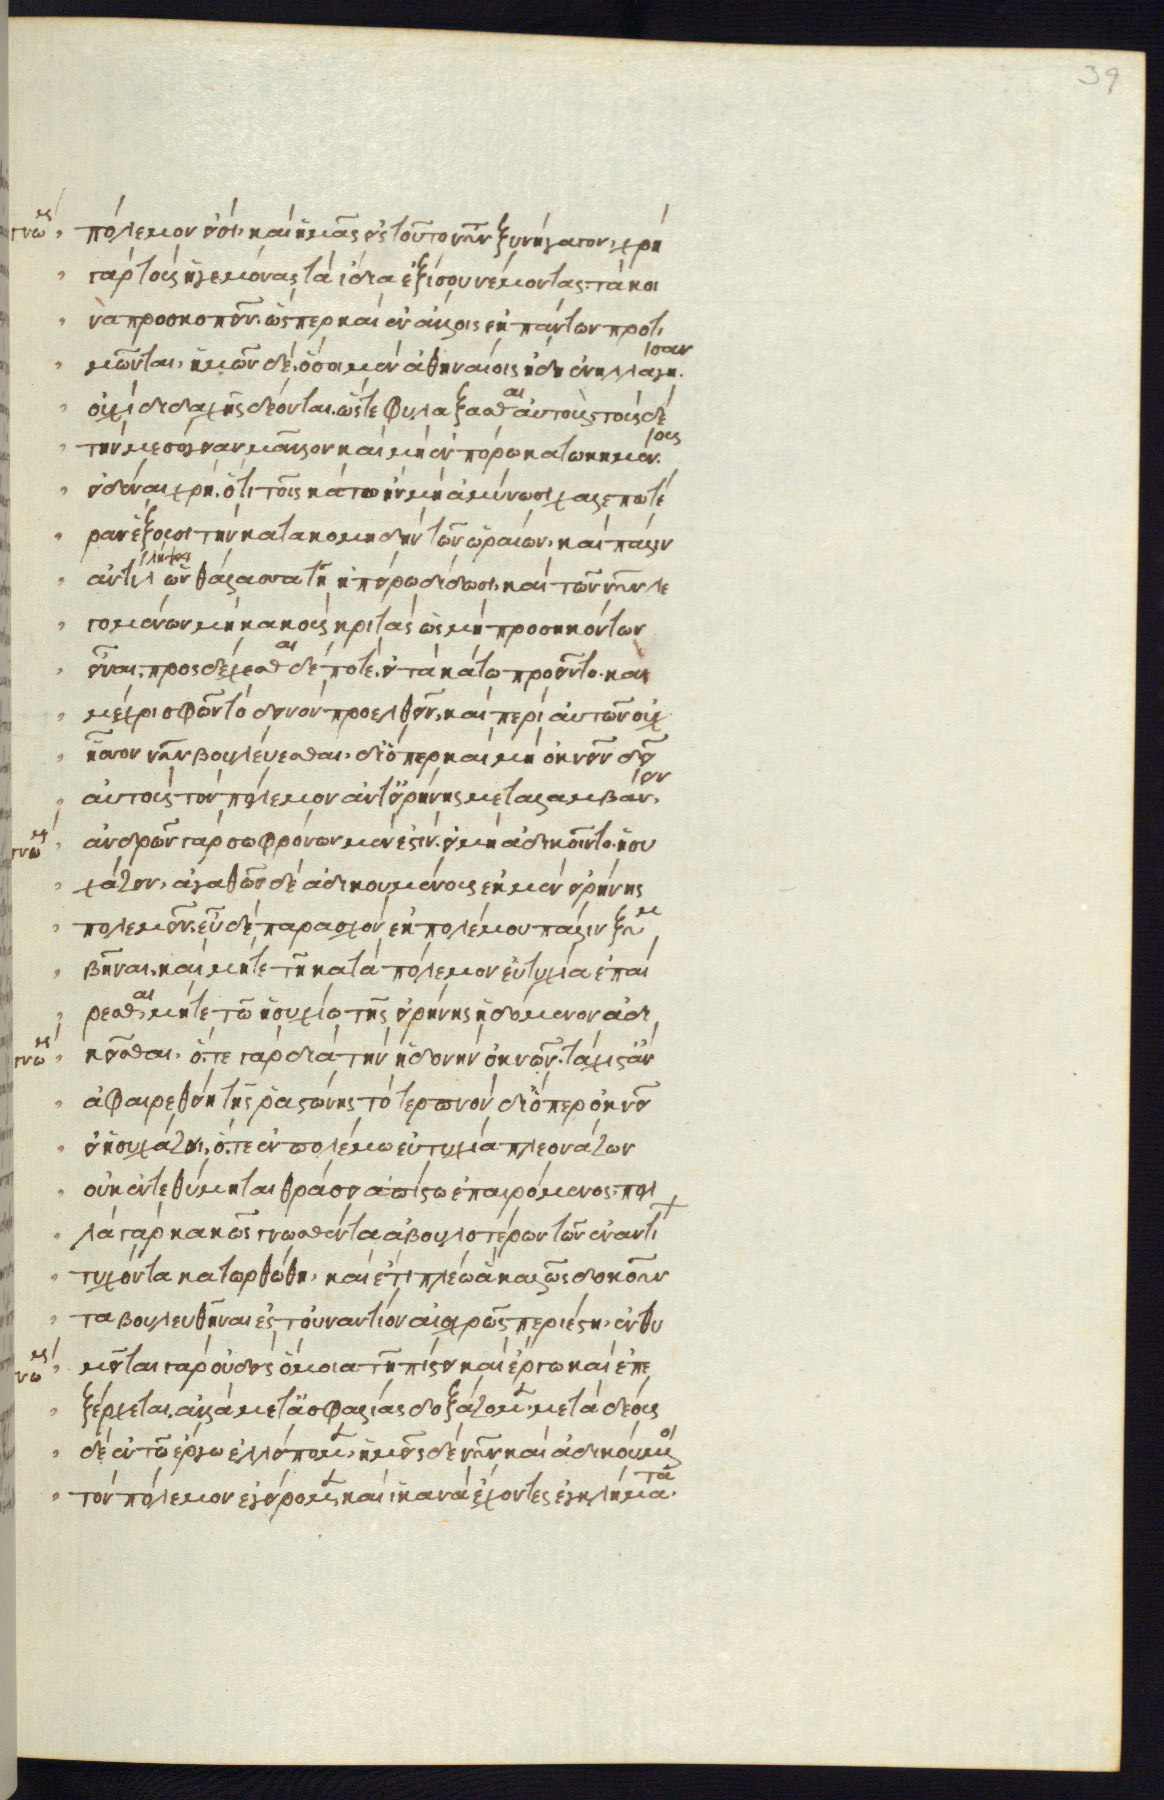 γνώμη πόλεμον εἰσὶ, καὶ ἡμᾶς εἰς τοῦτο νῦν ξυνήγαγον, χρὴ
γὰρ τοὺς ἡγεμόνας τὰ ἴδια ἐξίσου νέμοντας. τὰ κοι
νὰ προσκοπεῖν. ὥς περ καὶ ἐν ἄλλοις ἐκ πάντων προτι
μῶνται, ἡμῶν δὲ, ὅσοι μὲν ἀθηναίοις ἤδη ἐνηλλάγησαν.
οὐχὶ διδαχῆς δέονται. ὥςτε φυλάξασθαι αὐτούς, τοὺς δὲ
τὴν μεσόγειαν μᾶλλον καὶ μὴ ἐν πόρω κατωκημένους.
εἰδέναι χρὴ. ὅτι τοῖς κάτω ἢν μὴ ἀμύνωσι, χαλεπωτέ
ραν ἕξουσι τὴν κατακομιδὴν τῶν ὡραίων, καὶ πάλιν
ἀντίληψιν ὧν θάλασσα τῆ ἠπείρω δίδωσι, καὶ τῶν νῦν λε
γομένων μὴ κακοὺς κριτὰς ὡς μὴ προσηκόντων
εἶναι. προςδέχεσθαι δέ ποτε. εἰ τὰ κάτω προεῖντο. καὶ
μέχρι σφῶν τὸ δεινὸν προελθεῖν, καὶ περὶ αὐτῶν οὐχ
ἧσσον νῦν βουλεύεσθαι, διόπερ καὶ μὴ ὀκνεῖν δεῖ
αὐτοὺς τὸν πόλεμον ἀντ' εἰρήνης μεταλαμβάνειν,
γνώμη ἀνδρῶν γὰρ σωφρόνων μὲν ἐστίν. εἰ μὴ ἀδικοῖντο. ἡσυ
χάζειν, ἀγαθῶν δὲ ἀδικουμένους ἐκ μὲν εἰρήνης
πολεμεῖν. εὖ δὲ παρασχὸν ἐκ πολέμου πάλιν ξυμ
βῆναι. καὶ μήτε τῆ κατὰ πόλεμον εὐτυχία ἐπαί
ρεσθαι, μήτε τῶ ἡσυχίω τῆς εἰρήνης ἡδόμενον ἀδι
γνώμη κεῖσθαι, ὅ, τε γὰρ διὰ τὴν ἡδονὴν ὀκνῶν. τάχιστ' ἂν
ἀφαιρεθείη τῆς ῥαστώνης τὸ τερπνὸν διόπερ ὀκνεῖ
εἰ ἡσυχάζοι, ὅ, τε ἐν πολέμω εὐτυχία πλεονάζων
οὐκ ἐντεθύμηται θράσει ἀπίστω ἐπαιρόμενος, πολ
λὰ γὰρ κακῶς γνωσθέντα ἀβουλοτέρων τῶν ἐναντί
τυχόντα κατωρθώθη, καὶ ἔτι πλέω ἃ καλῶς δοκοῦν
τα βουλευθῆναι ἐς τοὐναντίον αἰσχρῶς περιέστη, ἐνθυ
γνώμη μεῖται γὰρ οὐδεὶς ὅμοια τῆ πίστει καὶ ἔργω καὶ ἐπε
ξέρχεται. ἀλλὰ μετ' ἀσφαλείας δοξάζομεν, μετὰ δέους
δὲ ἐν τῶ ἔργω ἐλλείπομεν, ἡμεῖς δὲ νῦν καὶ ἀδικούμενοι
τὸν πόλεμον ἐγείρομεν, καὶ ἱκανὰ ἔχοντες ἐγκλήματα.